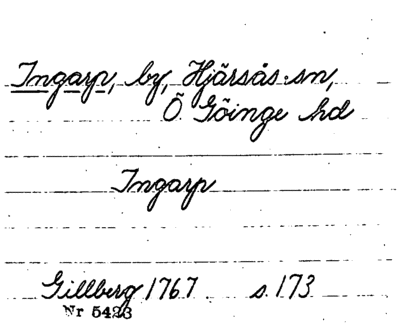 Ingarp, by, Hjärsås sn,
Ö Göinge hd
Ingarp
Gillberg 1767 s. 173
Nr 5423